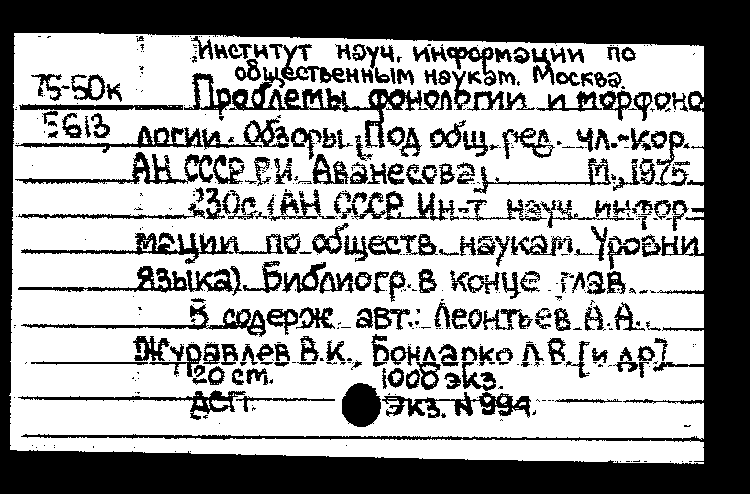 Институт науч. информации по
общественным наукам. Москва.
75-50к Проблемы фонологии и морфоно
5613 логии. Обзоры [Под общ. ред. чл.-кор.
АН СССР Р.И. Аванесова]. М., 1975.
230с. (АН СССР. Ин-т науч. инфор-
мации по обществ. наукам. Уровни
языка). Библиогр. в конце глав.
В содерж. авт.: Леонтьев А.А.,
Журавлев В.К., Бондарко Л.В. [и др]
20 см. 1000 экз.
ДСП. Экз. N 994.